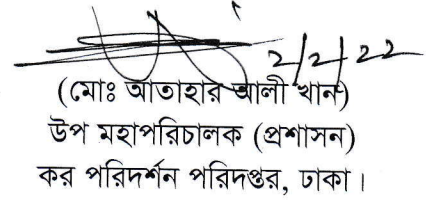 2/2/22
(মোঃ আতাহার আলী খান)
উপ মহাপরিচালক (প্রশাসন)
কর পরিদর্শন পরিদপ্তর, ঢাকা।